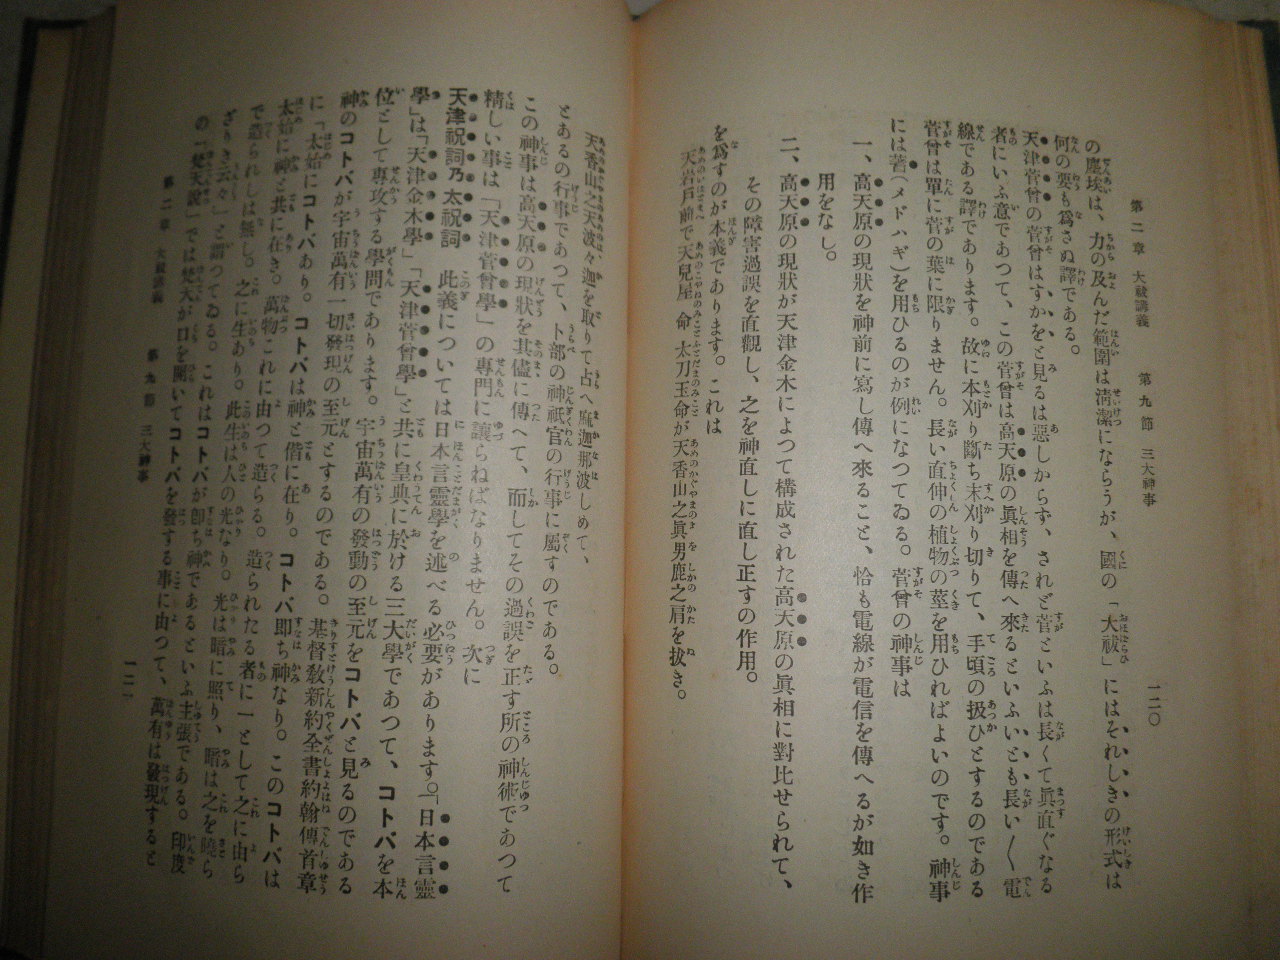 第二章 大祓講義 第九節 三大神事 一二〇
の塵埃は、力の及んだ範圍は清潔にならうが、國の「大祓」にはそれしきの形式は
何の要も爲さぬ譯である。
天津菅曾の菅曾はすがをと見るは惡しからず、されど菅といふは長くて眞直ぐなる
者にいふ意であつて、この菅曾は高天原の眞相を傳へ來るといふいとも長い〱電
線である譯であります。故に本刈り斷ち末刈り切りて、手頃の扱ひとするのである
菅曾は單に菅の葉に限りません。長い直伸の植物の莖を用ひればよいのです。神事
には蓍(メドハギ)を用ひるのが例になつてゐる。菅曾の神事は
一、高天原の現狀を神前に寫し傳へ來ること、恰も電線が電信を傳へるが如き作
用をなし。
二、高天原の現狀が天津金木によつて構成された高天原の眞相に對比せられて、
その障害過誤を直觀し、之を神直しに直し正すの作用。
を爲すのが本義であります。これは
天岩戸前で天兒屋命太刀玉命が天香山之眞男鹿之肩を拔き。
天香山之天波々迦を取りて占へ麻迦那波しめて、
とあるの行事であつて、卜部の神祇官の行事に屬すのである。
この神事は高天原の現狀を其儘に傳へて、而してその過誤を正す所の神術であつて
精しい事は「天津菅曾學」の專門に讓らねばなりません。次に
天津祝詞乃太祝詞 此義については日本言靈學を述べる必要があります。「日本言靈
學」は「天津金木學」「天津菅曾學」と共に皇典に於ける三大學であつて、コトバを本
位として專攻する學問であります。宇宙萬有の發動の至元をコトバと見るのである
神のコトバが宇宙萬有一切發現の至元とするのである。基督敎新約全書約翰傳首章
に「太始にコトバあり。コトバは神と偕に在り。コトバ卽ち神なり。このコトバは
太始に神と共に在き。萬物これに由つて造らる。造られたる者に一として之に由ら
で造られしは無し。之に生あり。此生は人の光なり。光は暗に照り、暗は之を曉ら
ざりき云々」と謂つてゐる。これはコトバが卽ち神であるといふ主張である。印度
の「梵天說」では梵天が口を開いてコトバを發する事に由つて、萬有は發現すると
第二章 大祓講義 第九節 三大神事 一二一